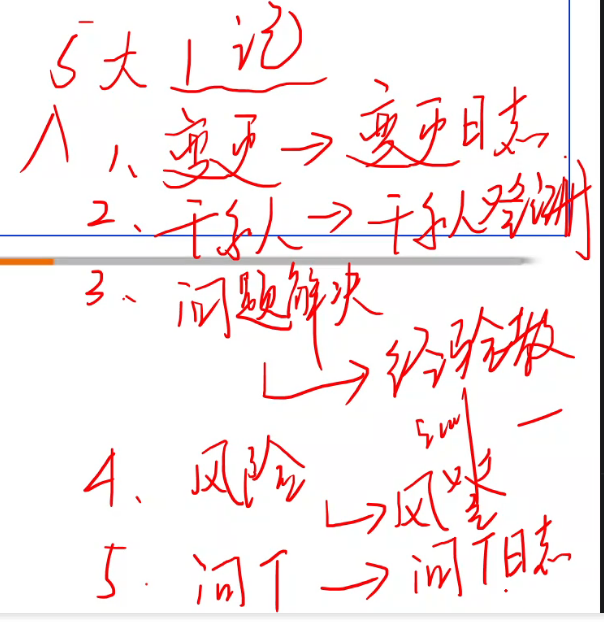 5大1记
1、变更→变更日志
2、干系人→干系人登册
3、问题解决
↳经验教
4、风险
↳风登
5.问T→问T日志